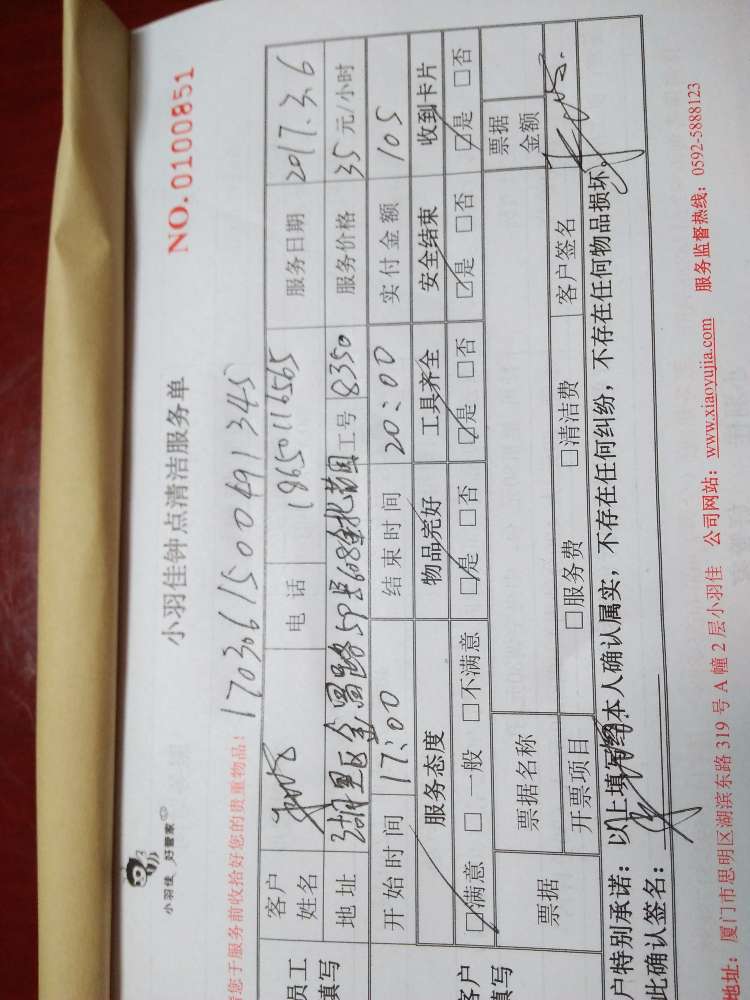 小羽佳 好管家
小羽佳钟点清洁服务单
NO. 0100851
请您于服务前收拾好您的贵重物品: 170306150049 1345
员工填写
客户姓名 电话 18650116565 服务日期 2017.3.6
地址 湖里区金昌路59号608 工号 8350 服务价格 35 元/小时
开始时间 17:00 结束时间 20:00 实付金额 105
客户填写
服务态度 物品完好 工具齐全 安全结束 收到卡片
☑满意 □一般 □不满意 ☑是 □否 ☑是 □否 ☑是 □否 ☑是 □否
票据 票据名称 票据金额
开票项目 □服务费 □清洁费 客户签名
户特别承诺: 以上填写经本人确认属实,不存在任何纠纷,不存在任何物品损坏。
此确认签名:
地址: 厦门市思明区湖滨东路 319 号 A 幢 2 层小羽佳 公司网站: www.xiaoyujia.com 服务监督热线: 0592-5888123